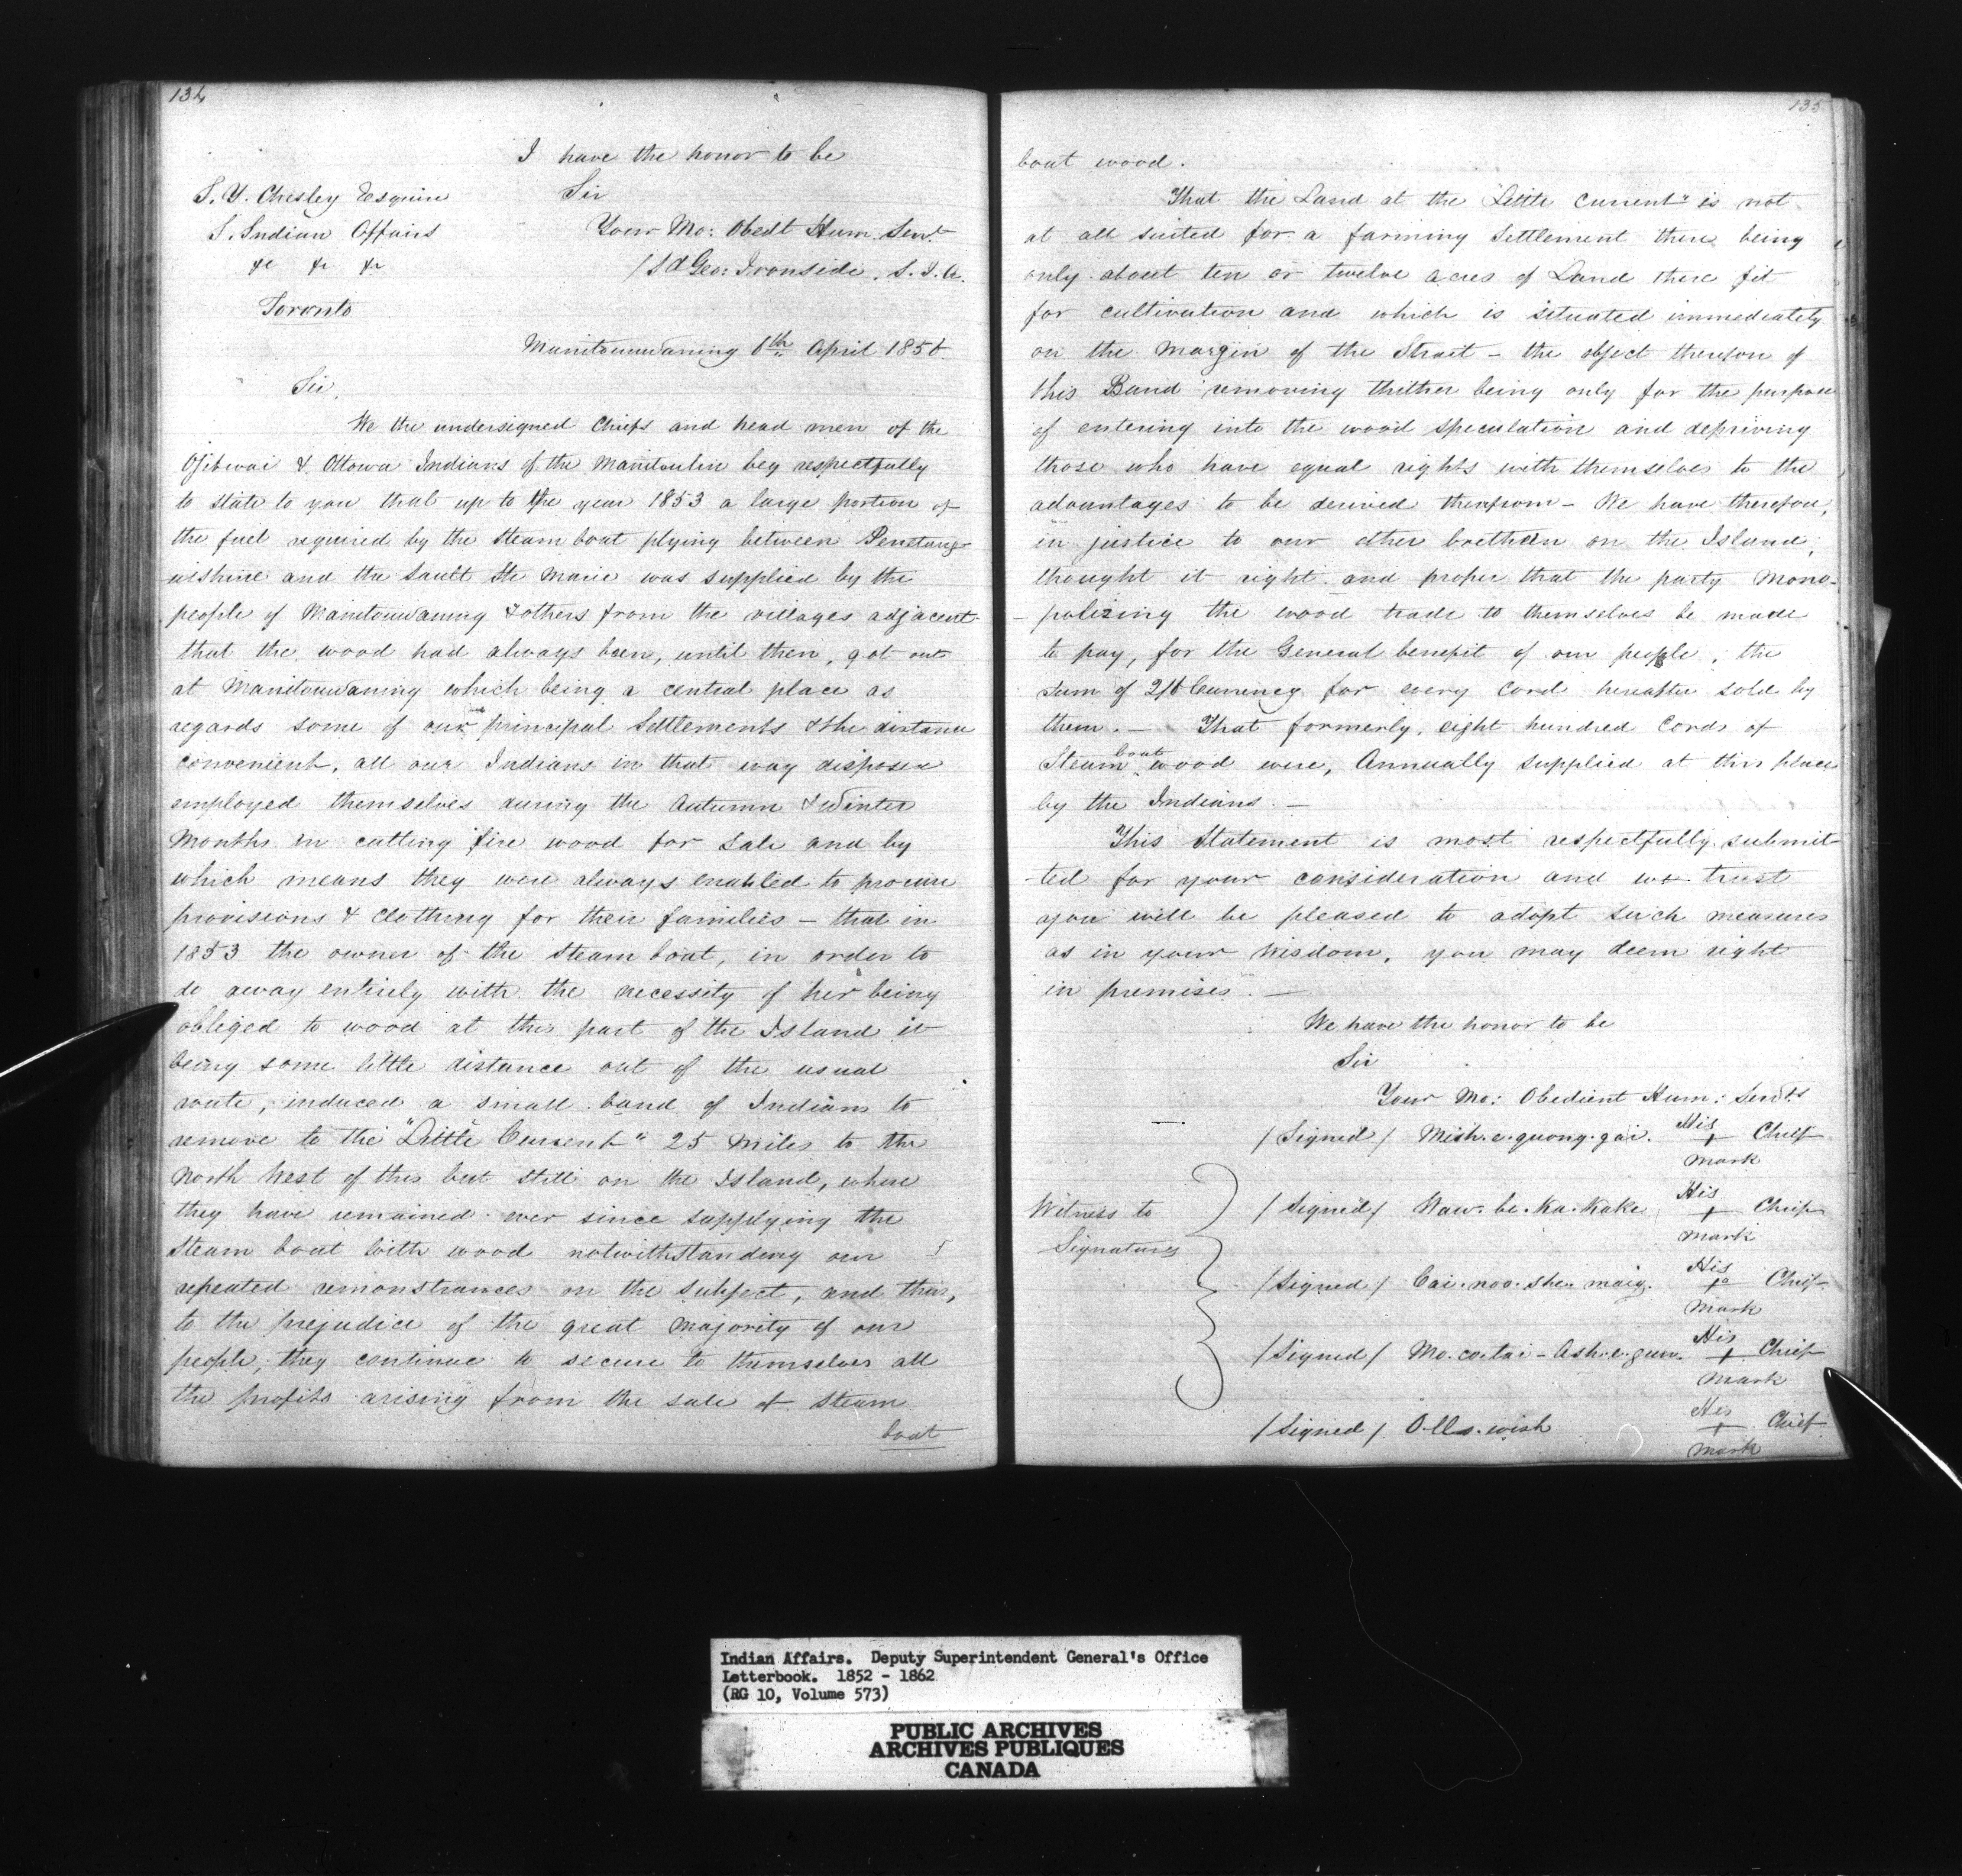 134
I have the honor to be
S. Y. Chesley Esquire
Sir
S. Indian Affairs
Your Mo: Obedt Hum. Servt
&c &c &c
/Sd Geo: Ironside. S. I. A.
Toronto
Manitouwaning 6th April 1856
Sir,
We the undersigned Chiefs and head men of the
Ojibwai & Ottowa Indians of the Manitoulin beg respectfully
to state to you that up to the year 1853 a large portion of
the fuel required by the Steam boat plying between Penetang-
uishine and the Sault Ste Marie was supplied by the
people of Manitouwaning & others from the villages adjacent
that the wood had always been, until then, got out
at Manitouwaning which being a central place as
regards some of our principal Settlements & the distance
convenient, all our Indians in that way disposed
employed themselves during the Autumn & Winter
Months in cutting fire wood for sale and by
which means they were always enabled to procure
provisions & clothing for their families – that in
1853 the owner of the Steam boat, in order to
do away entirely with the necessity of her being
obliged to wood at this part of the Island it
being some little distance out of the usual
route, induced a small band of Indians to
remove to the "Little Current" 25 Miles to the
North West of this but still on the Island, where
they have remained ever since supplying the
Steam boat with wood notwithstanding our
repeated remonstrances on the subject, and thus,
to the prejudice of the great Majority of our
people, they continue to secure to themselves all
the profits arising from the sale of Steam
boat
135
boat wood.
That the Land at the "Little Current" is not
at all suited for a farming Settlement there being
only about ten or twelve acres of Land there fit
for cultivation and which is situated immediately
on the Margin of the Strait – the object therefore of
this Band removing thither being only for the purpose
of entering into the wood speculation and depriving
those who have equal rights with themselves to the
advantages to be derived therefrom – We have therefore,
in justice to our other brethren on the Island,
thought it right and proper that the party Mono-
-polizing the wood trade to themselves be made
to pay, for the General benefit of our people, the
Sum of 2/6 Currency for every Cord hereafter sold by
them. – That formerly, eight hundred Cords of
Steam boat wood were, Annually supplied at this place
by the Indians. –
This Statement is most respectfully submit-
-ted for your consideration and we trust
you will be pleased to adopt such measures
as in your Wisdom, you may deem right
in premises. –
We have the honor to be
Sir
Your Mo: Obedient Hum: Servts
/Signed/ Mish.e.quong.gai. His + Chief
Mark
Witness to
Signatures
/Signed/ Waw.be.Ka.Kake His + Chief
Mark
/Signed/ Cai.noo.she.maig. His + Chief
Mark
/Signed/ Mo.co.tai-Ash.e.gun. His + Chief
Mark
/Signed/ His + Chief
Mark
Indian Affairs. Deputy Superintendent General's Office
Letterbook. 1852 - 1862
(RG 10, Volume 573)
PUBLIC ARCHIVES
ARCHIVES PUBLIQUES
CANADA